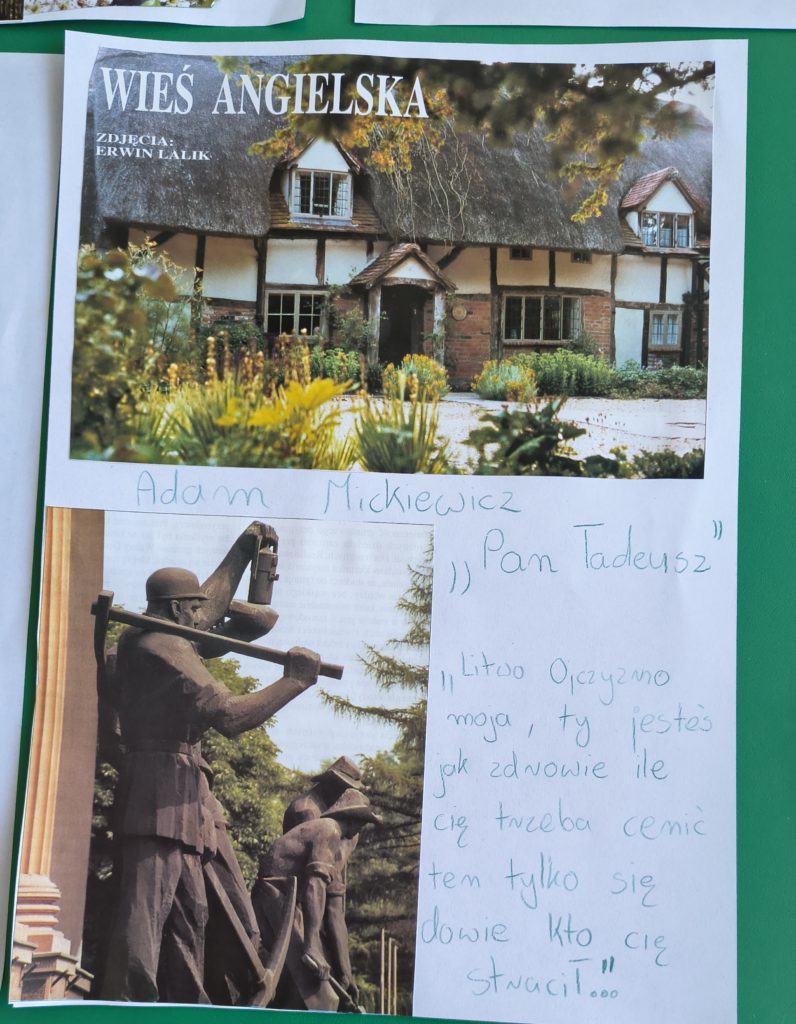 WIEŚ ANGIELSKA
ZDJĘCIA:
ERWIN LALIK
Adam Mickiewicz
„Pan Tadeusz"
„Litwo Ojczyzno
moja, ty jesteś
jak zdrowie ile
cię trzeba cenić
ten tylko się
dowie kto cię
stracił..."